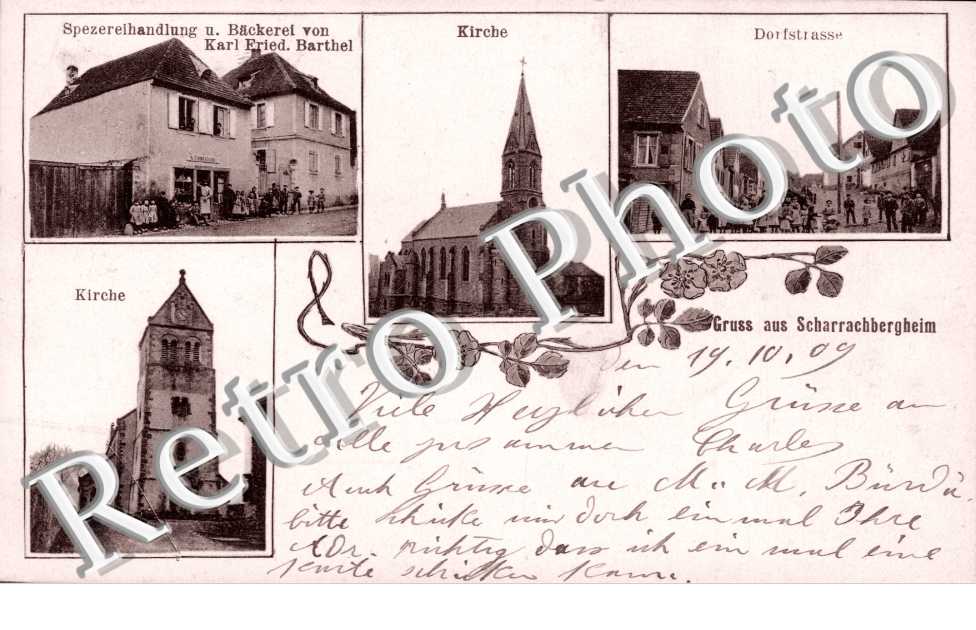 Spezereihandlung u. Bäckerei von
Karl Fried. Barthel
Kirche
Dorfstrasse
Kirche
Gruss aus Scharrachbergheim
den 19. 10. 09
Viele Herzlichen Grüsse an
alle zusammen Charles
Auch Grüsse an M. M.
bitte schicke mir doch ein mal Ihre
Adr. richtig dass ich ein mal eine
Karte schicken kann.
Retro Photo